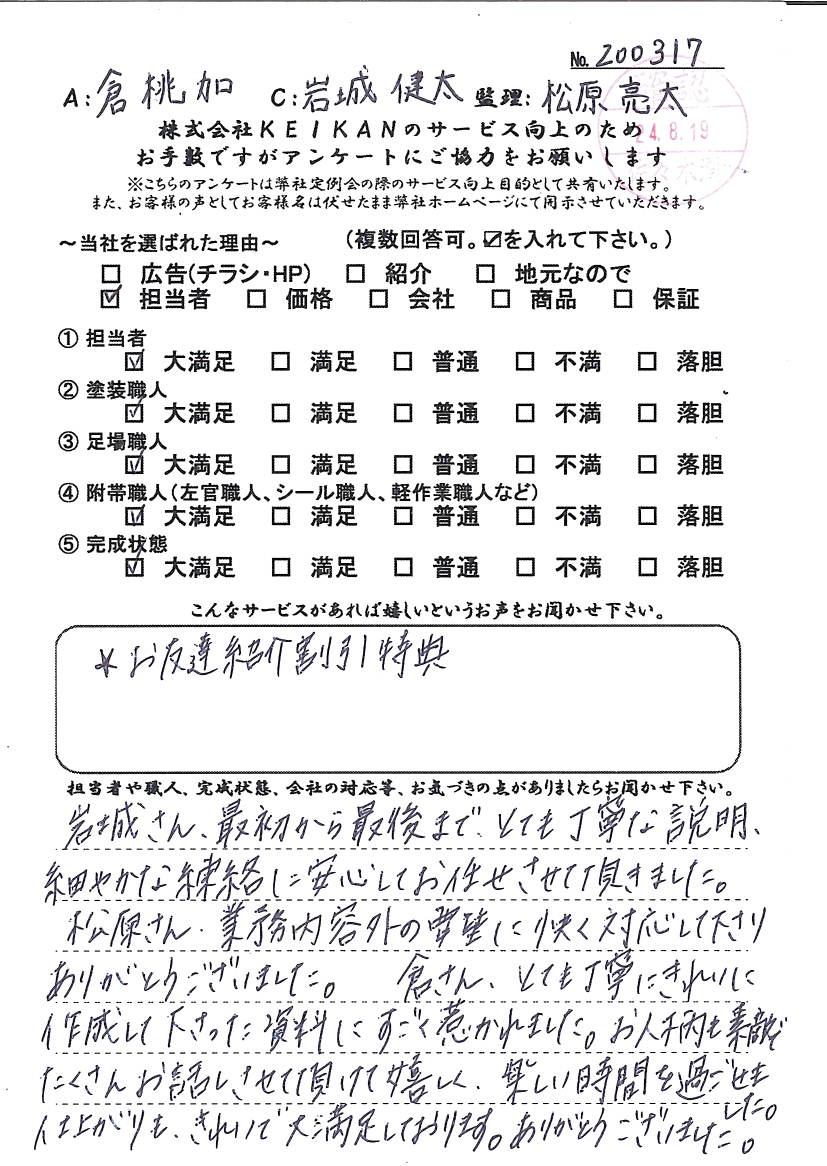 No. 200317
A:倉 桃加 C:岩城 健太 監理:松原 亮太
24.8.19
株式会社KEIKANのサービス向上のため
お手数ですがアンケートにご協力をお願いします
※こちらのアンケートは弊社定例会の際のサービス向上目的として共有いたします。
また、お客様の声としてお客様名は伏せたまま弊社ホームページにて開示させていただきます。
～当社を選ばれた理由～ (複数回答可。☑を入れて下さい。)
☐ 広告(チラシ・HP) ☐ 紹介 ☐ 地元なので
☑ 担当者 ☐ 価格 ☐ 会社 ☐ 商品 ☐ 保証
① 担当者
☑ 大満足 ☐ 満足 ☐ 普通 ☐ 不満 ☐ 落胆
② 塗装職人
☑ 大満足 ☐ 満足 ☐ 普通 ☐ 不満 ☐ 落胆
③ 足場職人
☑ 大満足 ☐ 満足 ☐ 普通 ☐ 不満 ☐ 落胆
④ 附帯職人(左官職人、シール職人、軽作業職人など)
☑ 大満足 ☐ 満足 ☐ 普通 ☐ 不満 ☐ 落胆
⑤ 完成状態
☑ 大満足 ☐ 満足 ☐ 普通 ☐ 不満 ☐ 落胆
こんなサービスがあれば嬉しいというお声をお聞かせ下さい。
* お友達紹介割引特典
担当者や職人、完成状態、会社の対応等、お気づきの点がありましたらお聞かせ下さい。
岩城さん、最初から最後まで、とても丁寧な説明、
細やかな練絡しに安心してお任せさせて頂きました。
松原さん、業務内容外の要望に快く対応して下さり
ありがとうございました。 倉さん、とても丁寧にきれいに
作成して下さった資料にすごく惹かれました。お人柄も素敵で
たくさんお話しさせて頂けて嬉しく、楽しい時間を過ごせました。
仕上がりも、きれいで大満足しております。ありがとうございました。